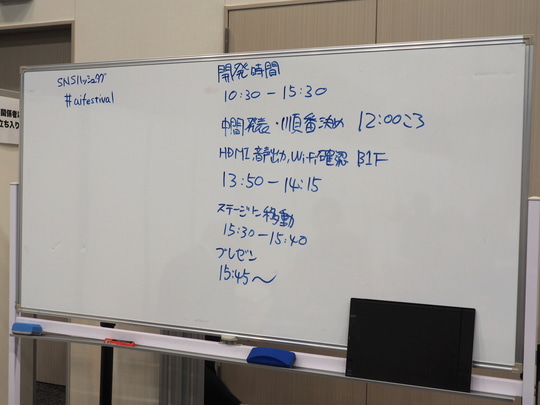 SNSハッシュタグ
#aifestival
開発時間
10:30-15:30
中間発表・順番決め 12:00ころ
HDMI,音声出力,WiFi確認 B1F
13:50-14:15
ステージに移動
15:30-15:40
プレゼン
15:45〜
関係者
立ち入り